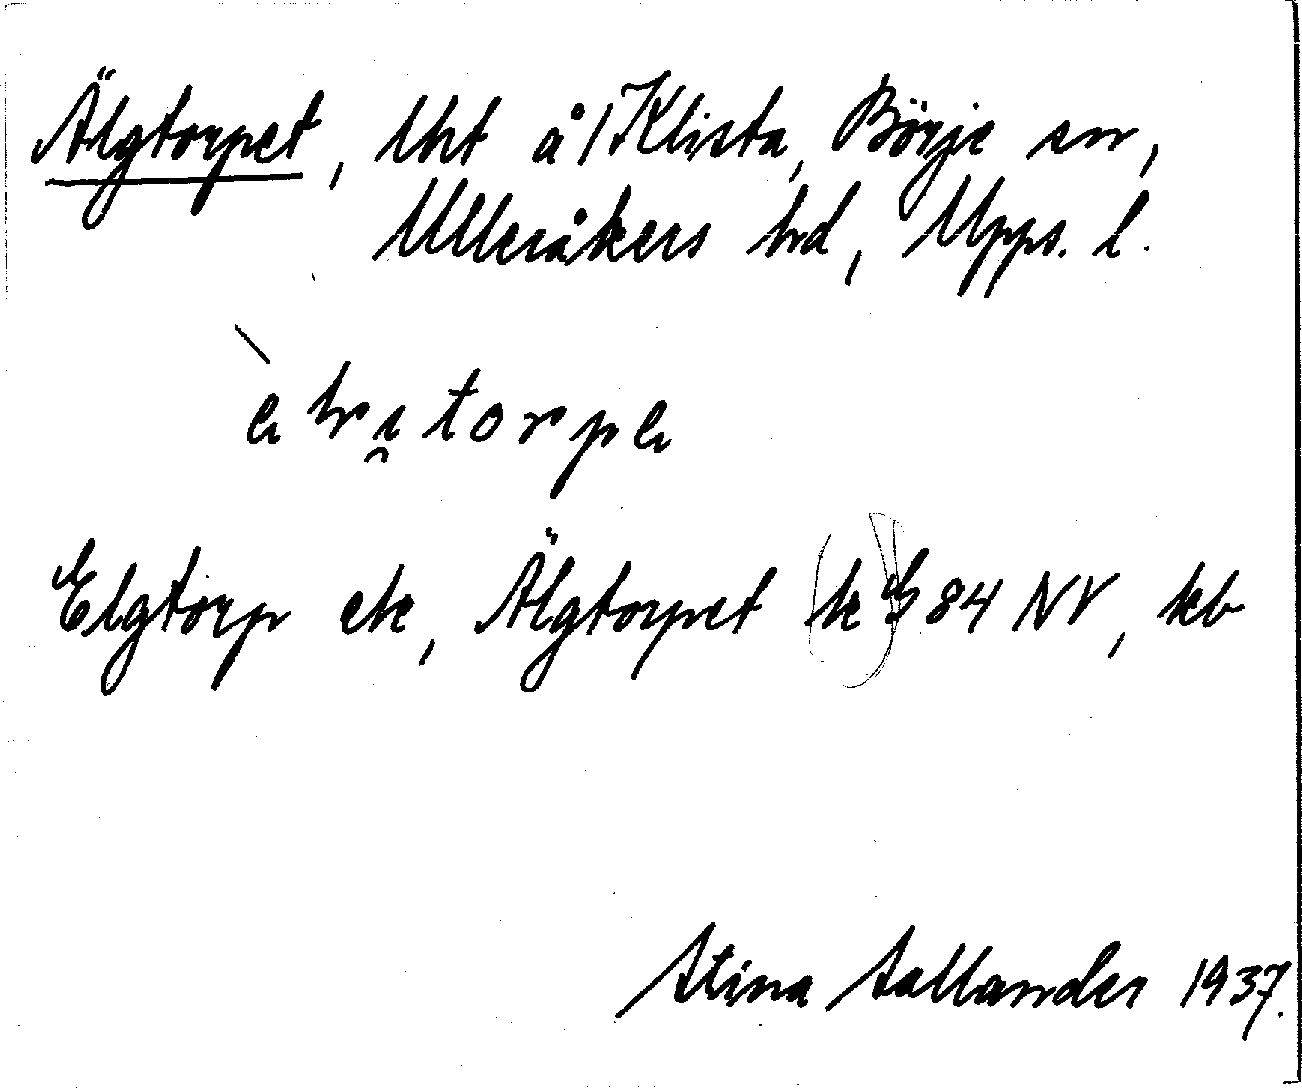 Älgtorpet, lht å/Klista, Börje sn,
Ulleråkers hd, Upps. l.
Elgtorp ek, Älgtorpet (k G) 84 NV, kb
Stina Sallander 1937.